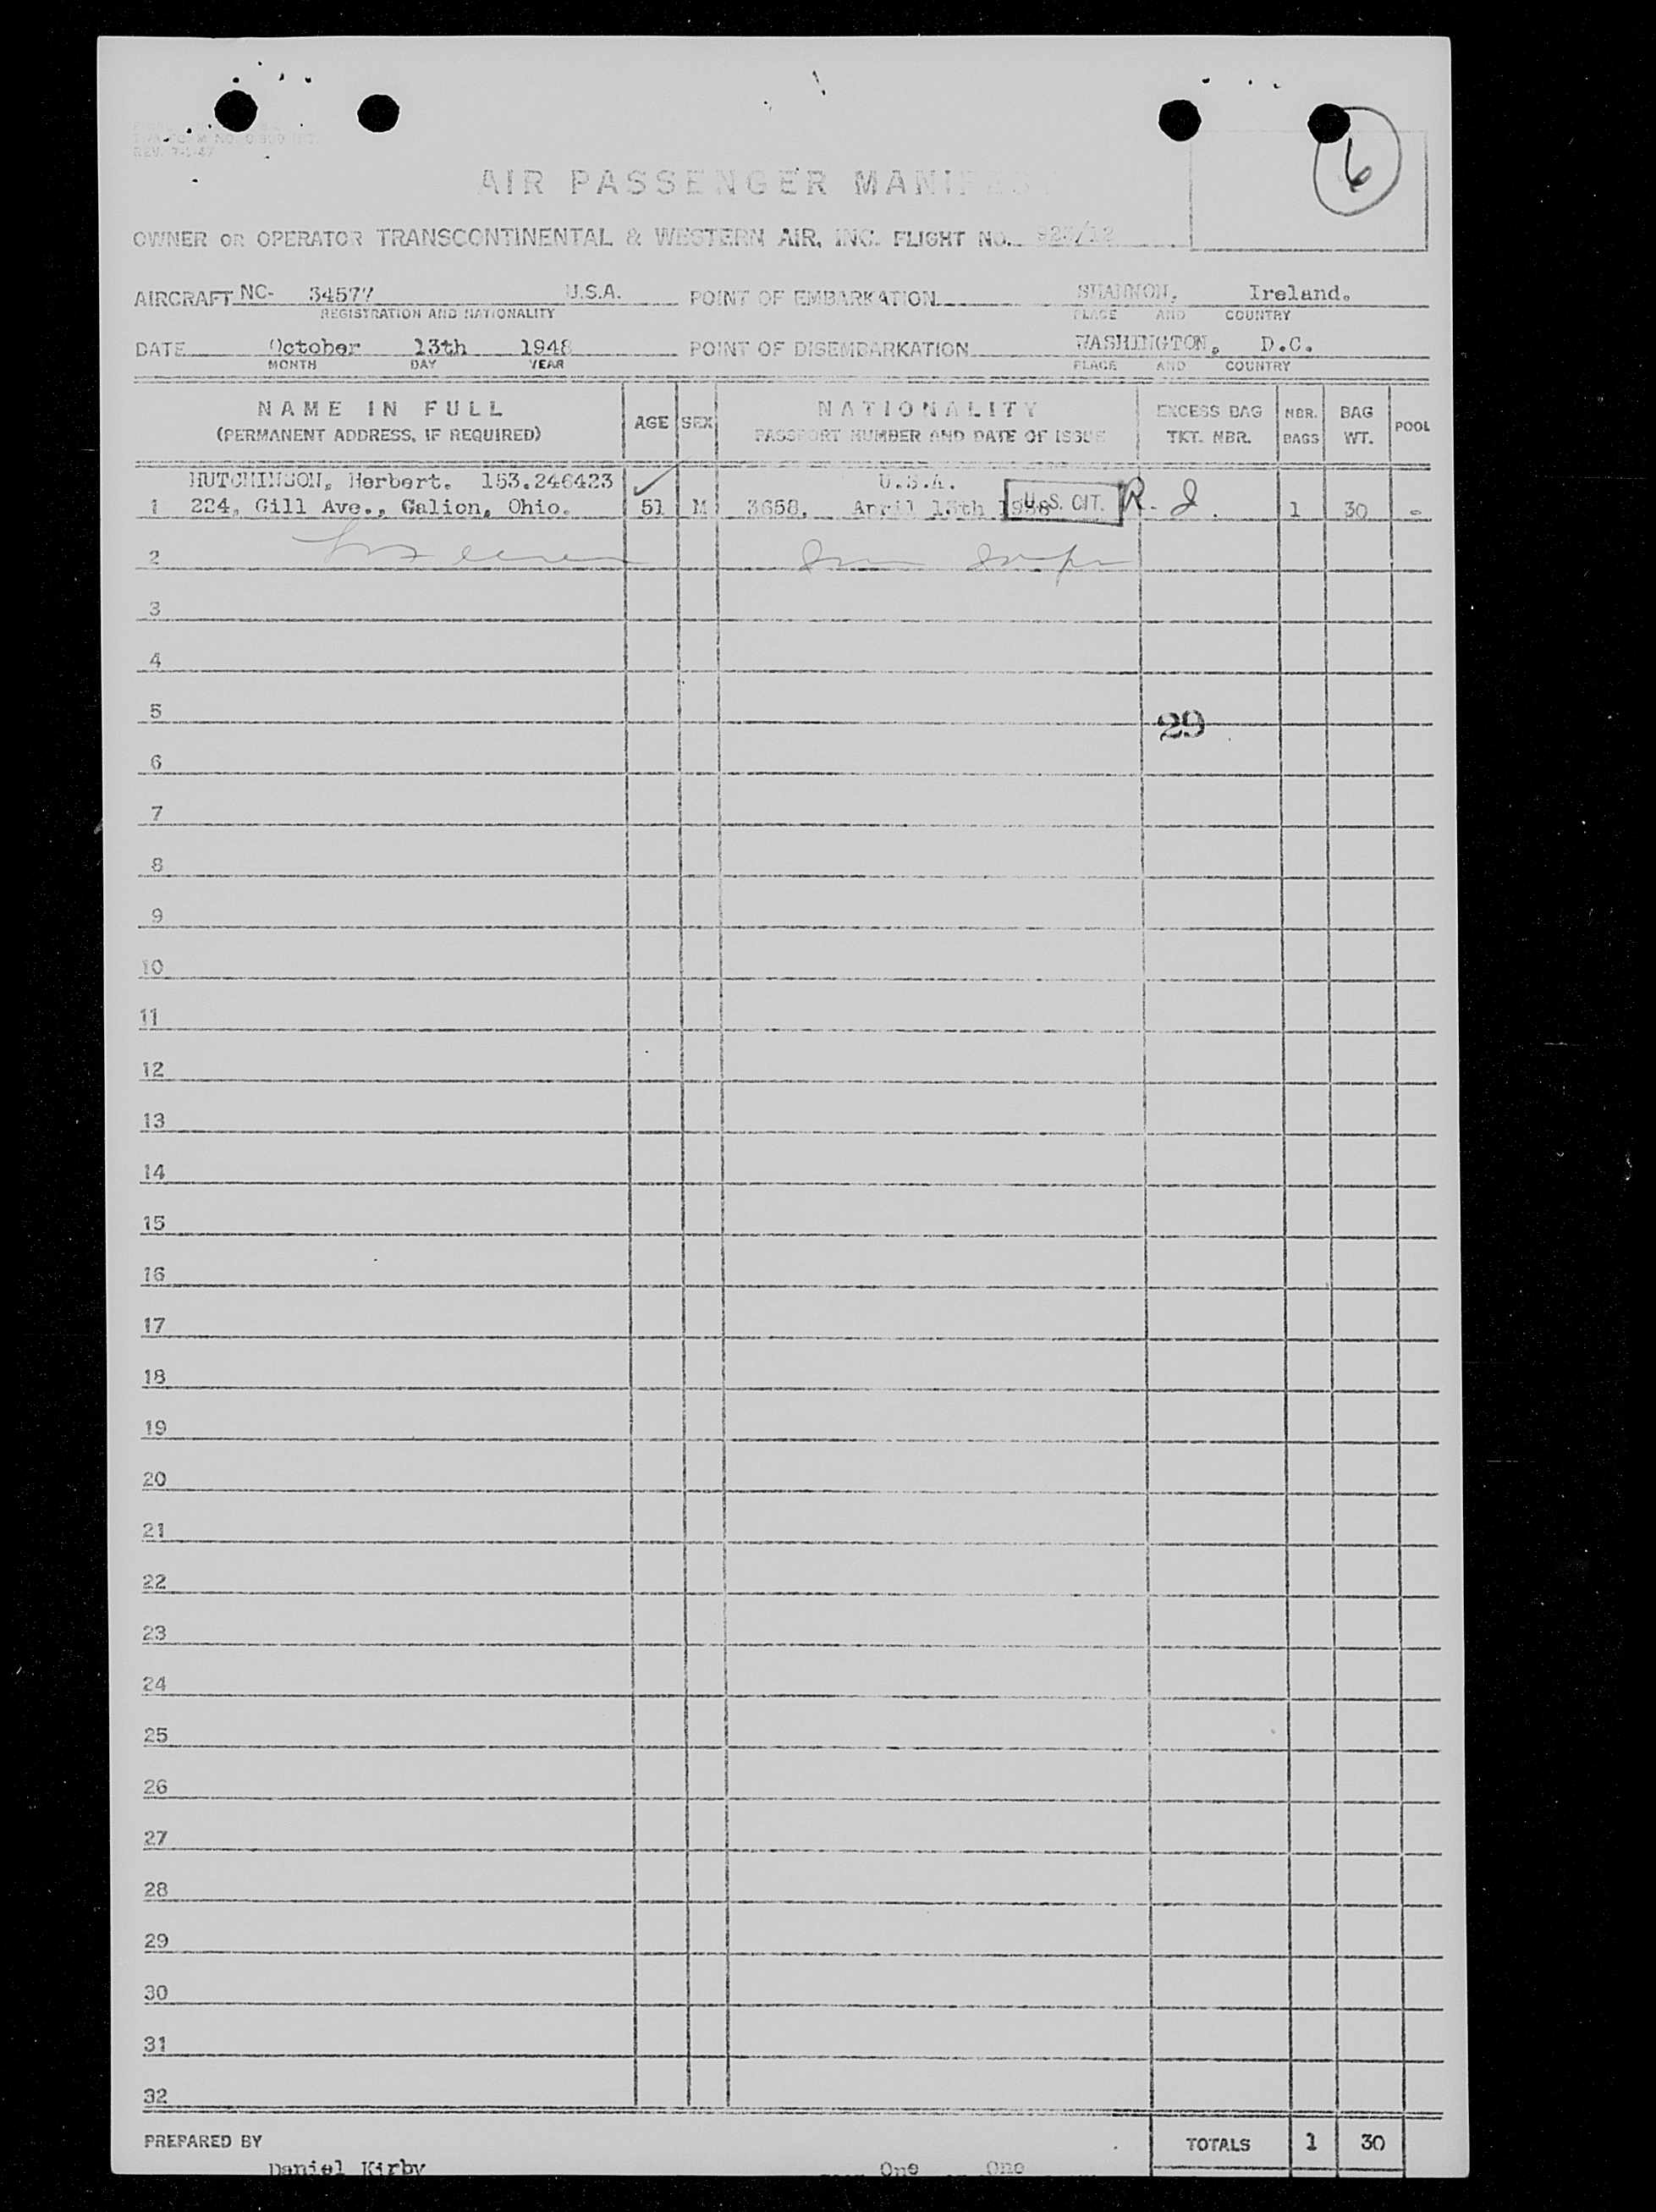 6
REV. 7-1-47
AIR PASSENGER
OWNER OR OPERATOR TRANSCONTINENTAL & WESTERN AIR, INC. FLIGHT NO.
AIRCRAFT NC- 34577 U.S.A. POINT OF EMBARKATION SHANNON, Ireland.
REGISTRATION AND NATIONALITY PLACE AND COUNTRY
DATE October 13th 1948 POINT OF DISEMBARKATION WASHINGTON, D.C.
MONTH DAY YEAR PLACE AND COUNTRY
NAME IN FULL AGE SEX NATIONALITY EXCESS BAG NBR. BAG POOL
(PERMANENT ADDRESS, IF REQUIRED) PASSPORT NUMBER AND DATE OF ISSUE TKT. NBR. BAGS WT.
HUTCHINSON, Herbert. 153.246423 U.S.A.
1 224, Gill Ave., Galion, Ohio. 51 M 3658, April U.S. CIT. 1 30 -
2
3
4
5 29
6
7
8
9
10
11
12
13
14
15
16
17
18
19
20
21
22
23
24
25
26
27
28
29
30
31
32
PREPARED BY TOTALS 1 30
Daniel Kirby One One